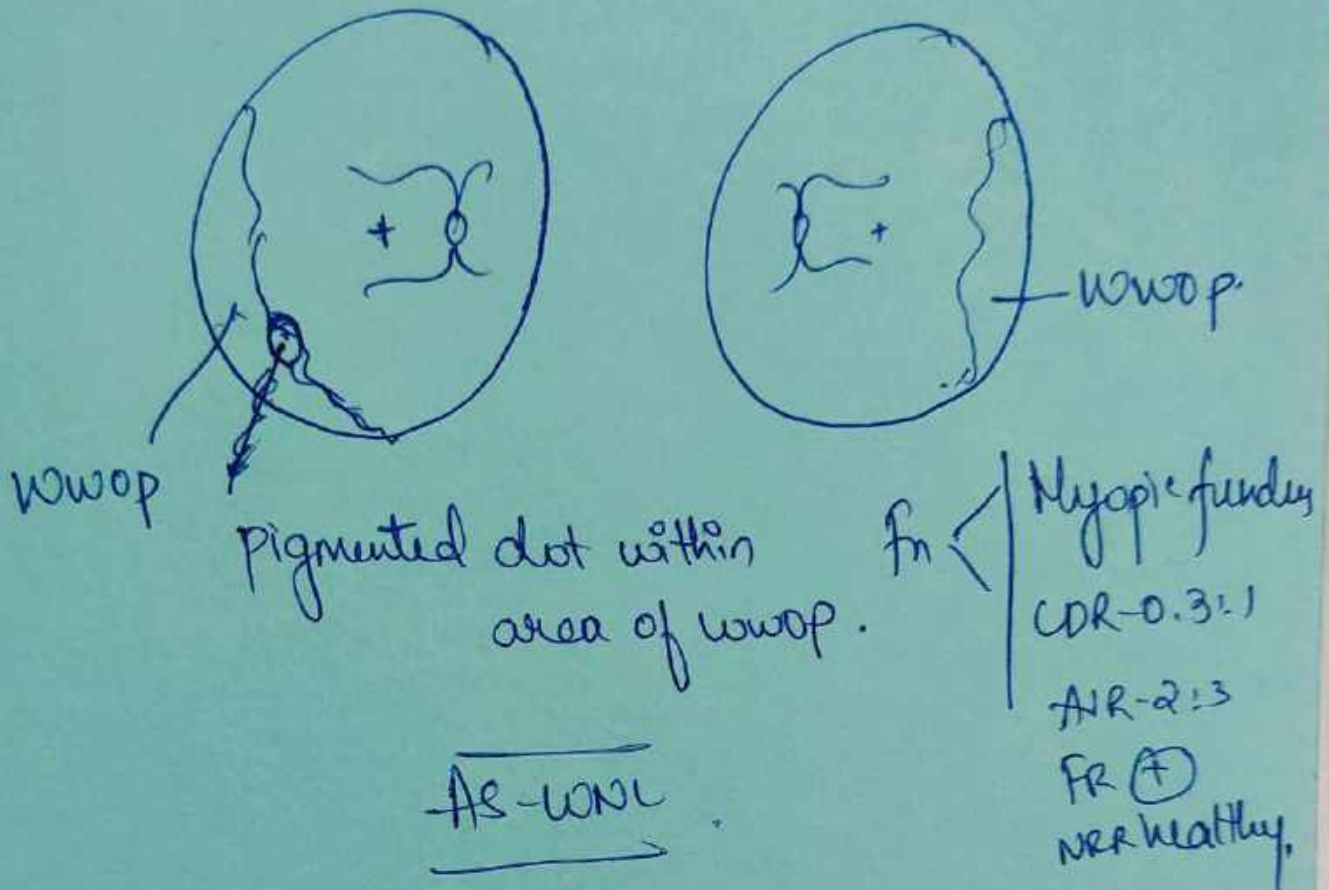 WWOP.
WWOP
pigmented dot within
area of WWOP.
fn
Myopic fundus
CDR-0.3:1
AVR-2:3
FR +
NRR healthy.
AS-WNL